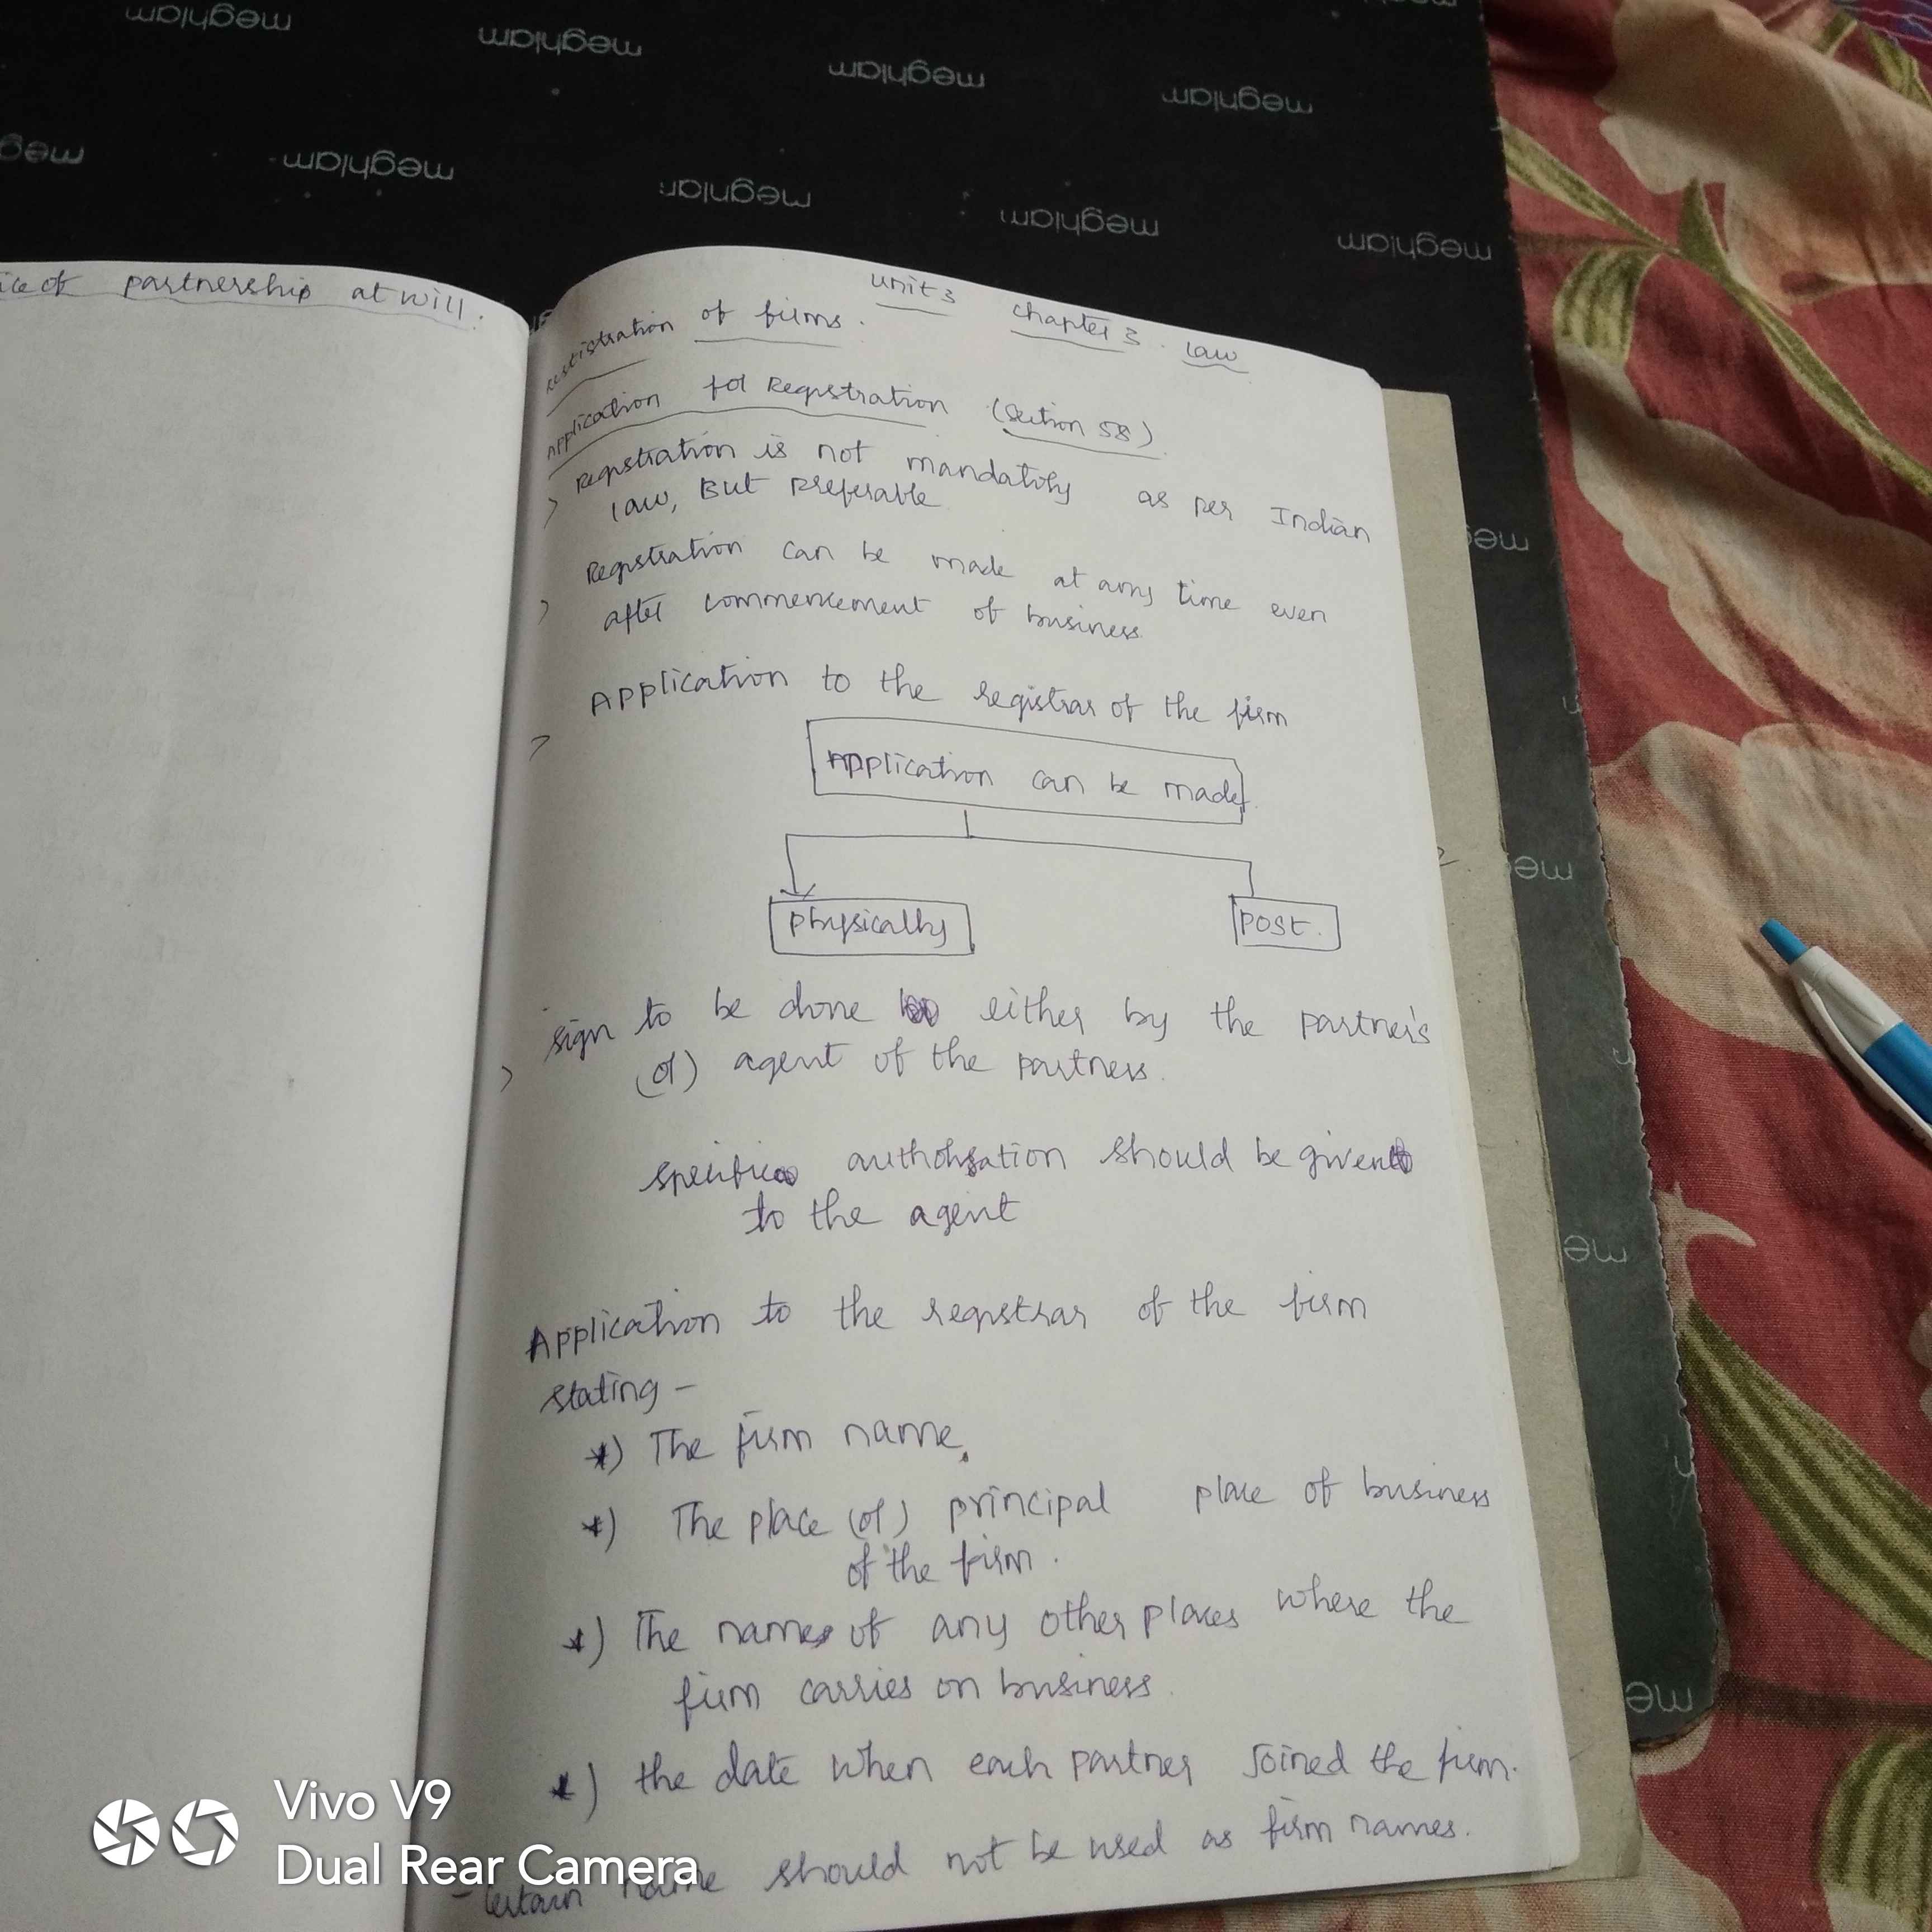 ice of partnership at will.
unit 3 chapter 3. law
Registration of firms.
Application for Registration (Section 58)
> Registration is not mandatory as per Indian
law, But preferable
> Registration can be made at any time even
after commencement of business.
> Application to the registrar of the firm
Application can be made.
physically
post.
> sign to be done either by the partner's
(or) agent of the partners.
specific authorisation should be given
to the agent
Application to the registrar of the firm
stating -
*) The firm name.
*) The place (or) principal place of business
of the firm.
*) The names of any other places where the
firm carries on business.
*) the date when each partner joined the firm.
- Certain name should not be used as firm names.
meghlam
meghlam
meghlam
meghlam
meghlam
meghlam
meghlam
meghlam
Vivo V9
Dual Rear Camera